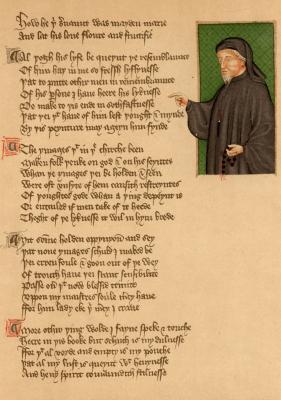 How he þi servaunt was mayden marie
And lat his love floure and fructifie
Al þogh his lyfe be queynt þe resemblaunce
Of him haþ in me so fressh lyflynesse
Þat to putte othir men in remembraunce
Of his persone I have heere his lyknesse
Do make to þis ende in sothfastnesse
Þat þei þt have of him lest þought & mynde
By þis peynture may ageyn him fynde
The ymages þt in þe chirche been
Maken folk þenke on god & on his seyntes
Whan þe ymages þei beholden & seen
Were oft unsyte of hem causith restreyntes
Of þoughtes gode whan a þing depeynt is
Or entailed if men take of it heede
Thoght of þe lyknesse it wil in hym brede
Yit somme holden oppynyoun and sey
Þat none ymages schuld I maked be
Þei erren foule & goon out of þe wey
Of trouth have þei scant sensibilite
Passe over þt now blessid trinite
Uppon my maistres soule mercy have
ffor him lady eke þi mercy I crave
More othir þing wolde I fayne speke & touche
Heere in þis booke but schuch is my dulnesse
ffor þt al voyde and empty is my pouche
Þat al my lust is queynt wt hevynesse
And hevy spirit comaundith stilnesse